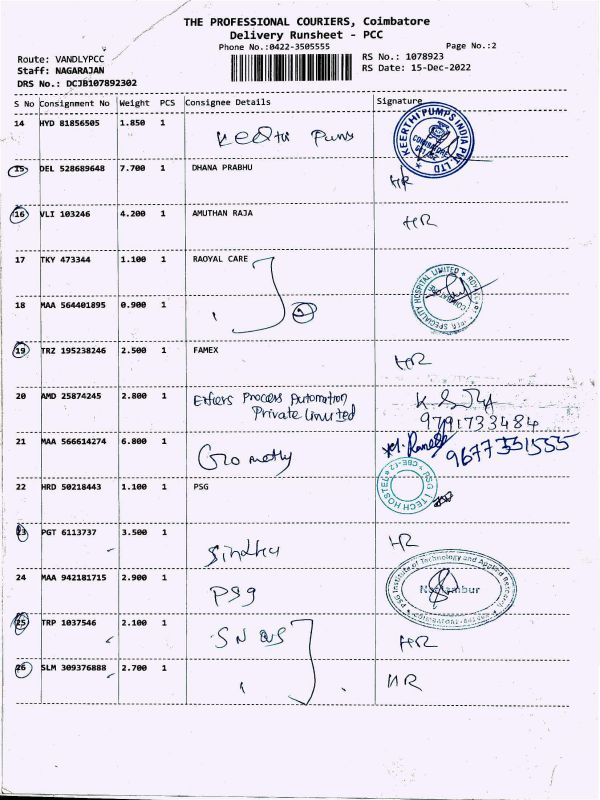 THE PROFESSIONAL COURIERS, Coimbatore
Delivery Runsheet - PCC
Phone No.:0422-3505555
Page No.:2
Route: VANDLYPCC
RS No.: 1078923
Staff: NAGARAJAN
RS Date: 15-Dec-2022
DRS No.: DCJB107892302
S No Consignment No Weight PCS Consignee Details Signature
14 HYD 81856505 1.850 1
KEERTHI PUMPS INDIA PVT LTD
COIMBATORE
15 DEL 528689648 7.700 1 DHANA PRABHU
HR
16 VLI 103246 4.200 1 AMUTHAN RAJA
HR
17 TKY 473344 1.100 1 RAOYAL CARE
SPECIALITY HOSPITAL LIMITED
18 MAA 564401895 0.900 1
19 TRZ 195238246 2.500 1 FAMEX
HR
20 AMD 25874245 2.800 1 Process Automation
Private Limited
9791733484
21 MAA 566614274 6.800 1
9677351555
22 HRD 50218443 1.100 1 PSG
PSG i TECH HOSTEL
23 PGT 6113737 3.500 1 Sindhu
HR
24 MAA 942181715 2.900 1 PSG
PSG Institute of Technology and Applied Research
Neelambur
25 TRP 1037546 2.100 1
HR
26 SLM 309376888 2.700 1
HR